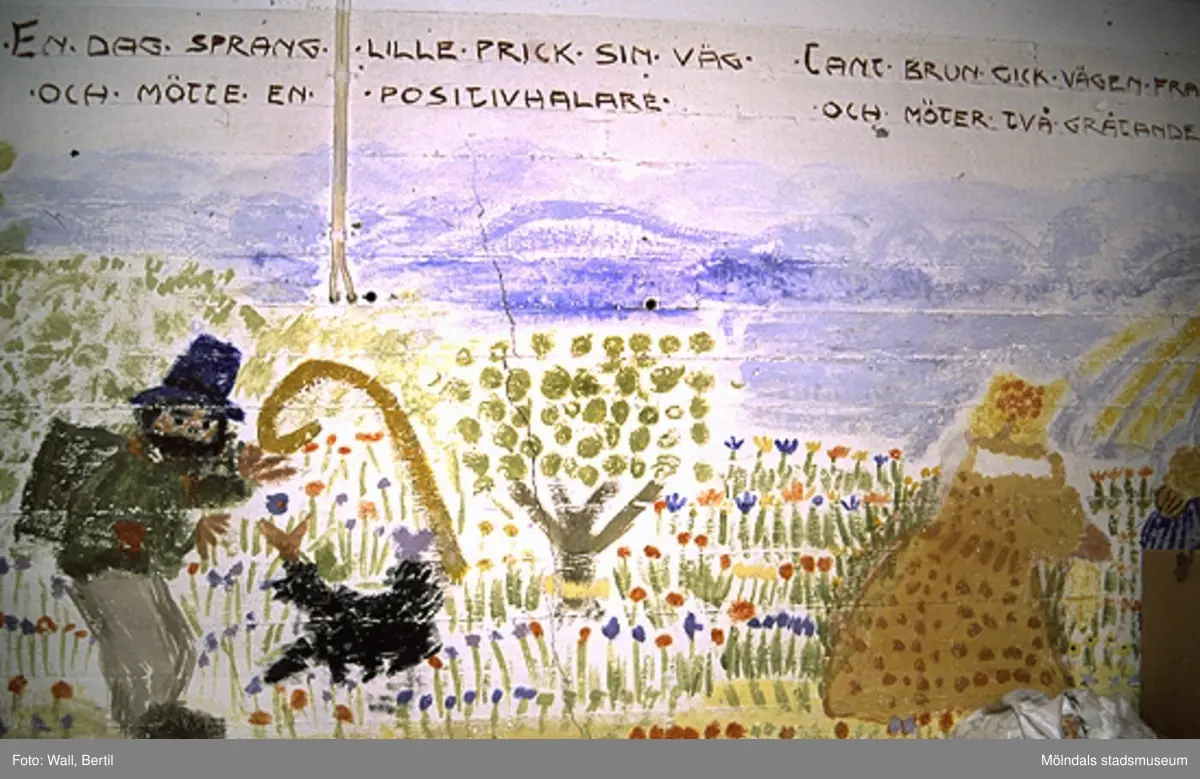 ·EN·DAG·SPRANG· ·LILLE·PRICK·SIN·VÄG·
·OCH·MÖTTE·EN· ·POSITIVHALARE·
·TANT·BRUN·GICK·VÄGEN·FRA
·OCH·MÖTER·TVÅ·GRÅTANDE
Foto: Wall, Bertil
Mölndals stadsmuseum